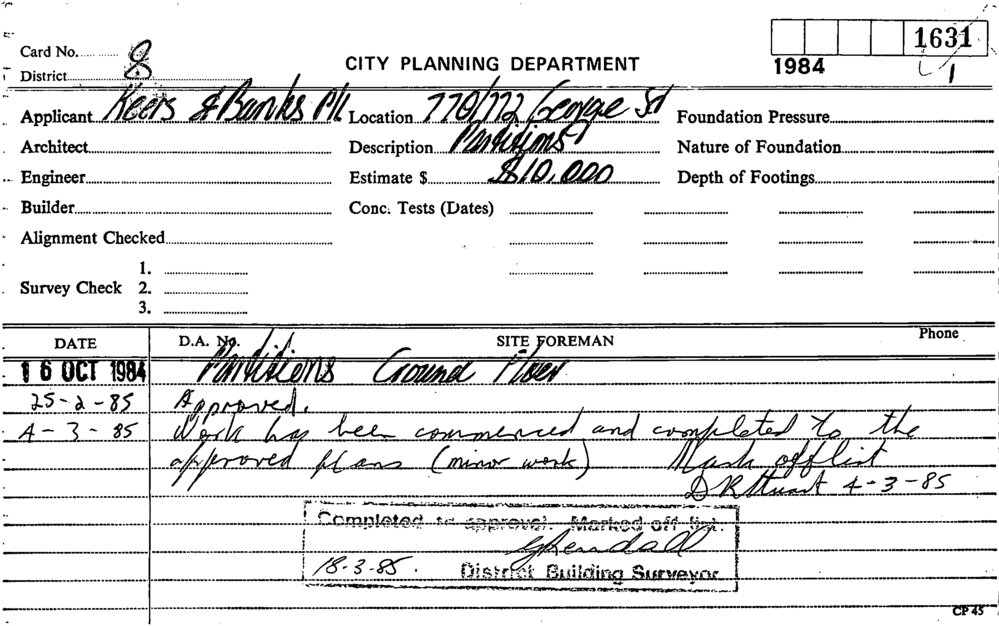 1631
Card No. 8
CITY PLANNING DEPARTMENT
1984
1
District
Applicant Keers & Banks P/L Location 770/772 George St Foundation Pressure
Architect Description Partitions Nature of Foundation
Engineer Estimate $ $10,000 Depth of Footings
Builder Conc. Tests (Dates)
Alignment Checked
1.
Survey Check 2.
3.
DATE D.A. No. SITE FOREMAN Phone
16 OCT 1984 Partitions Ground Floor
25-2-85 Approved.
4-3-85 Work has been commenced and completed to the
approved plans (minor work) Mark off list
D R Stuart 4-3-85
Completed to approval. Marked off list.
18-3-85. District Building Surveyor
CP 45